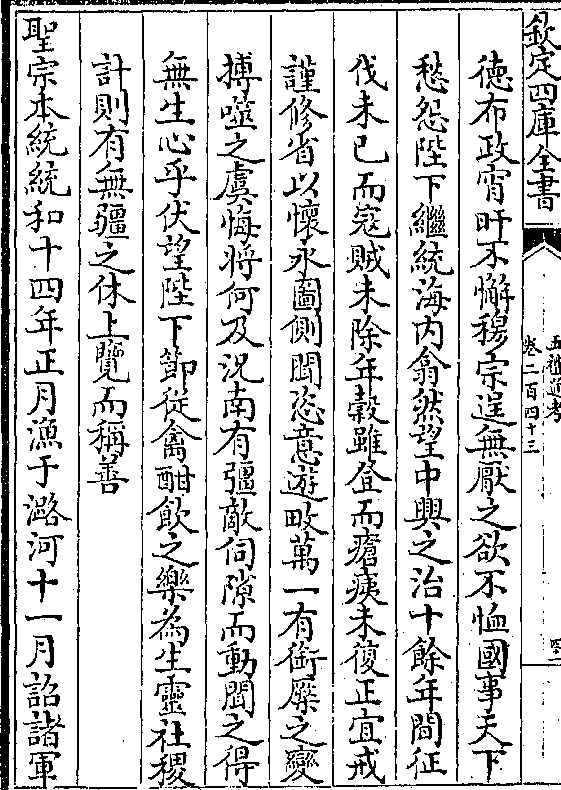 欽定四庫全書
五禮通考
卷二百四十三
德布政宵旰不懈穆宗逞無厭之欲不恤國事天下
愁怨陛下繼統海内翕然望中興之治十餘年間征
伐未已而寇賊未除年榖雖登而瘡痍未復正宜戒
謹修省以懷永圖側聞恣意遊畋萬一有銜橜之變
搏噬之虞悔將何及況南有彊敵伺隙而動聞之得
無生心乎伏望陛下節從禽酣飲之樂為生靈社稷
計則有無疆之休上覽而稱善
聖宗本統統和十四年正月漁于潞河十一月詔諸軍